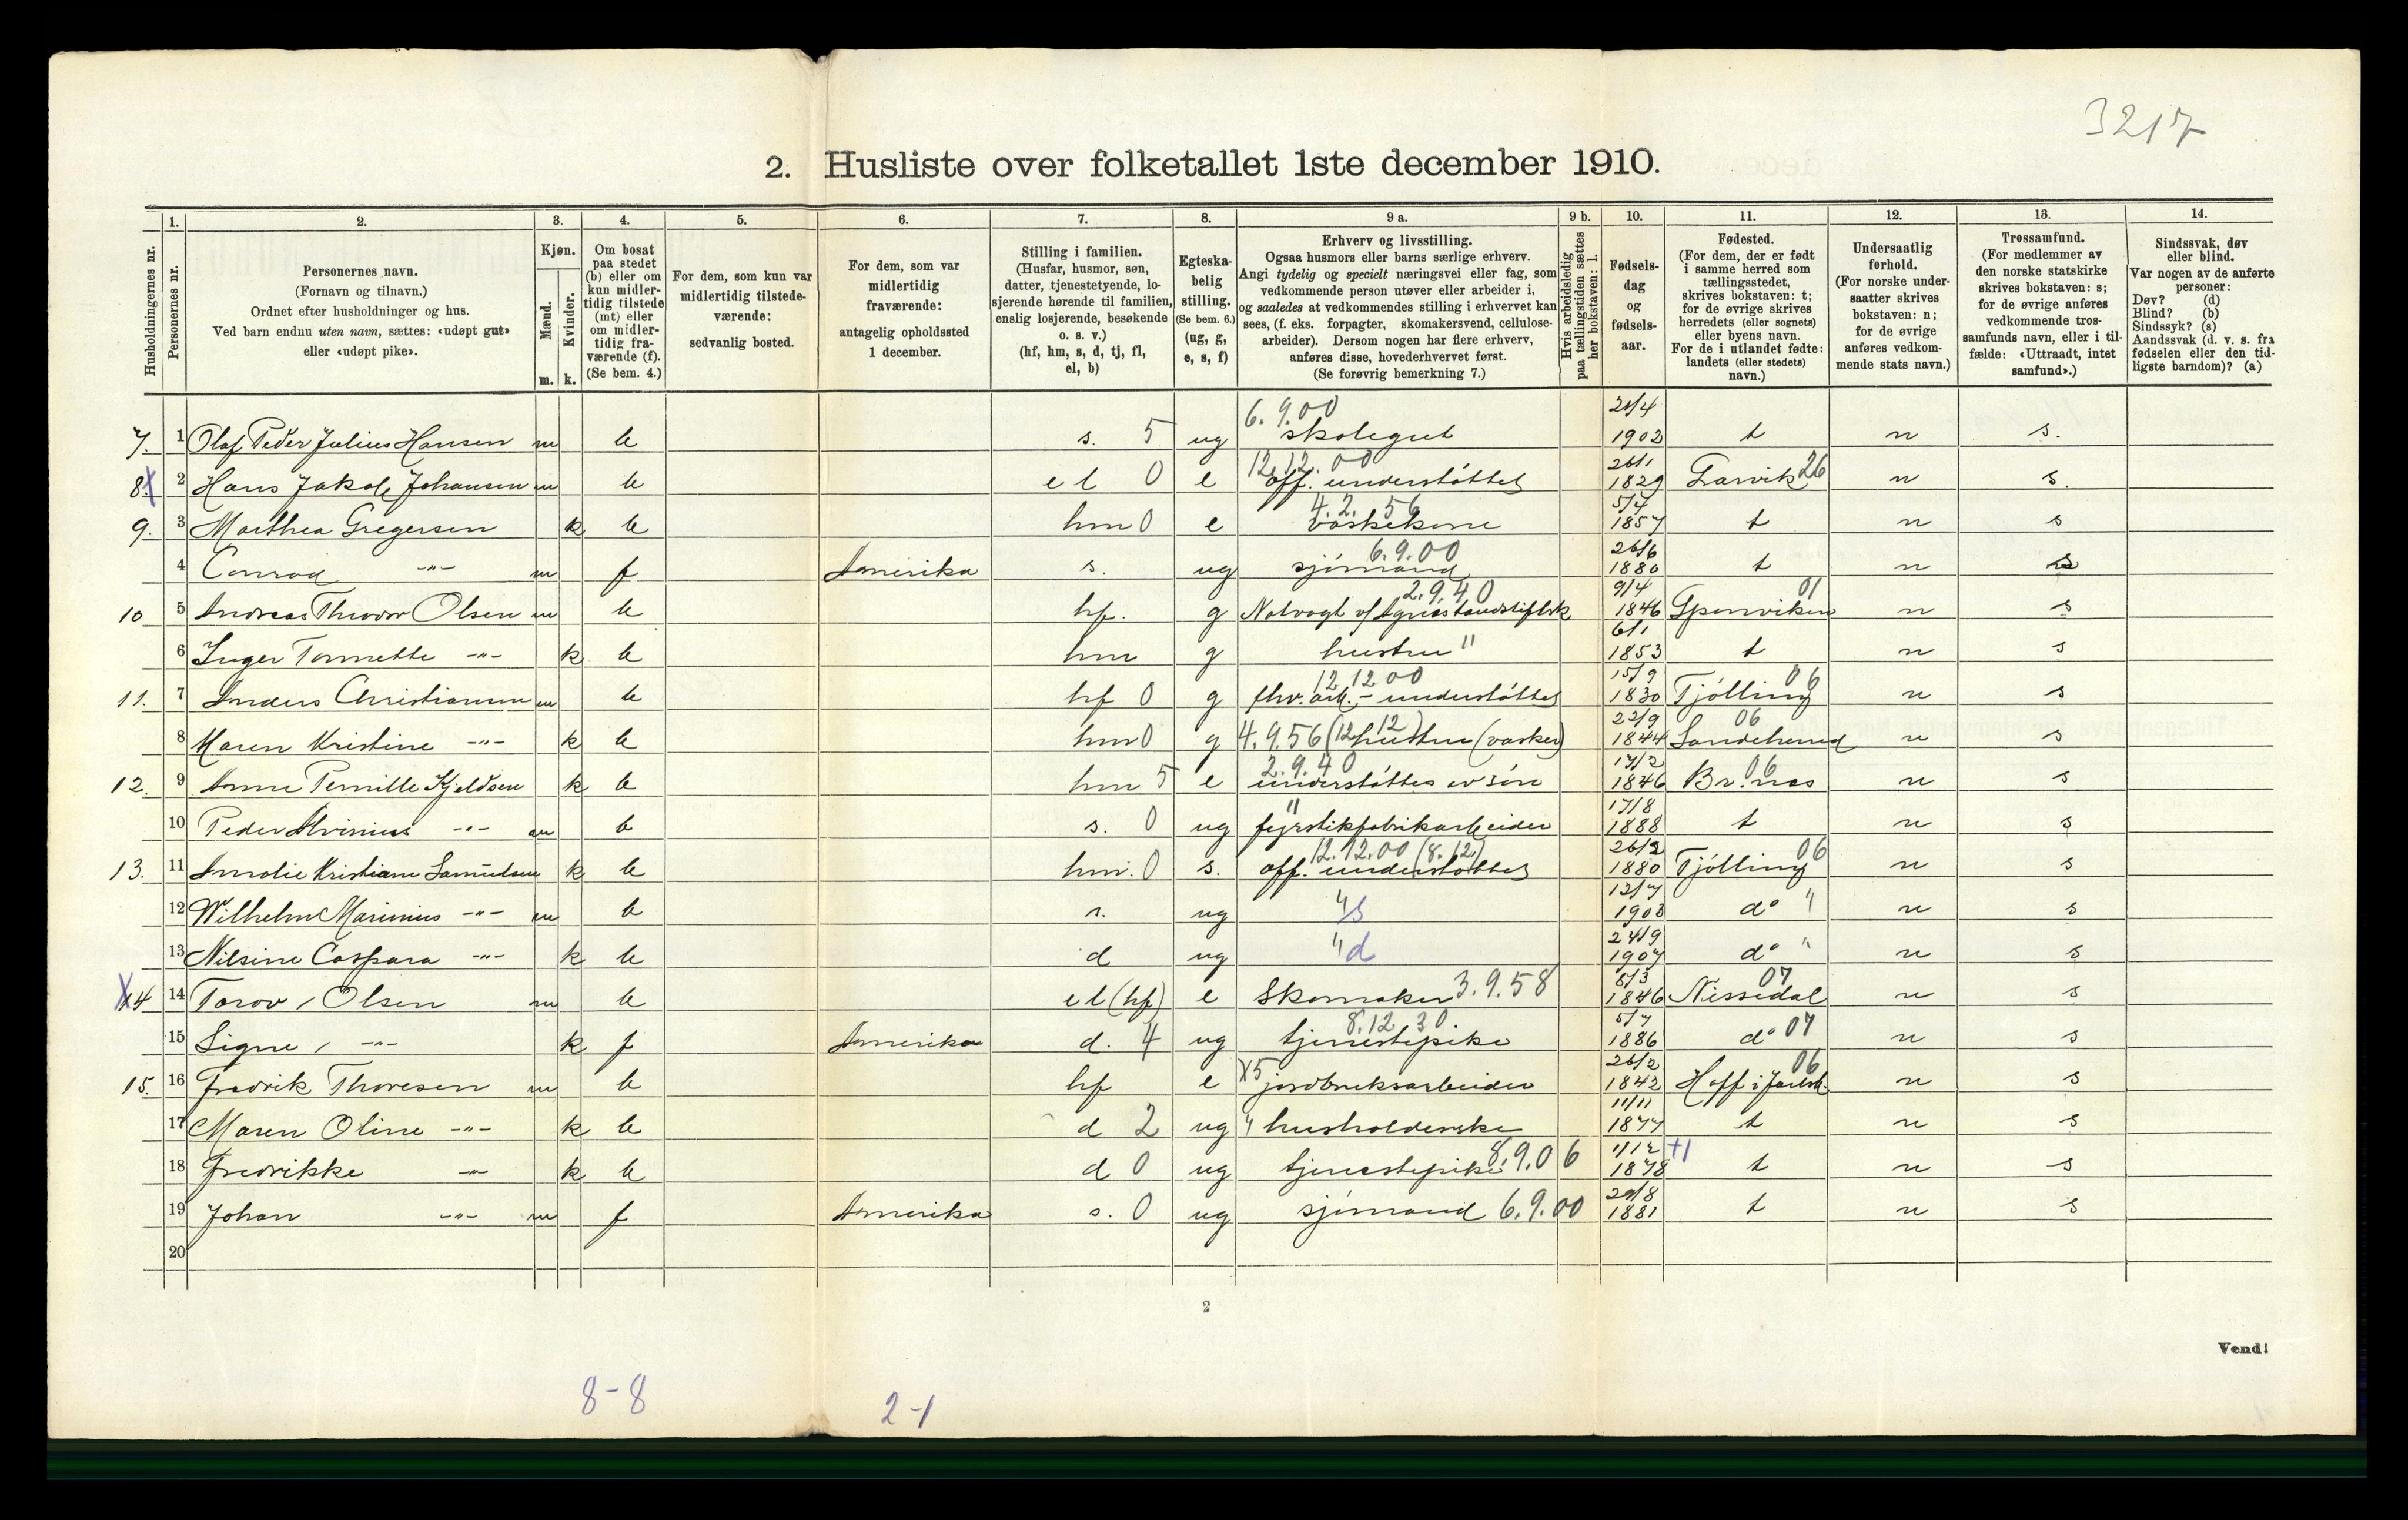 3217
2. Husliste over folketallet 1ste december 1910.
Husholdningernes nr.
1. Personernes nr.
2. Personernes navn.
(Fornavn og tilnavn.)
Ordnet efter husholdninger og hus.
Ved barn endnu uten navn, sættes: «udøpt gut»
eller «udøpt pike».
3. Kjøn.
Mænd. m.
Kvinder. k.
4. Om bosat
paa stedet
(b) eller om
kun midler-
tidig tilstede
(mt) eller
om midler-
tidig fra-
værende (f).
(Se bem. 4.)
5. For dem, som kun var
midlertidig tilstede-
værende:
sedvanlig bosted.
6. For dem, som var
midlertidig
fraværende:
antagelig opholdssted
1 december.
7. Stilling i familien.
(Husfar, husmor, søn,
datter, tjenestetyende, lo-
sjerende hørende til familien,
enslig losjerende, besøkende
o. s. v.)
(hf, hm, s, d, tj, fl,
el, b)
8. Egteska-
belig
stilling.
(Se bem. 6.)
(ug, g,
e, s, f)
9 a. Erhverv og livsstilling.
Ogsaa husmors eller barns særlige erhverv.
Angi tydelig og specielt næringsvei eller fag, som
vedkommende person utøver eller arbeider i,
og saaledes at vedkommendes stilling i erhvervet kan
sees, (f. eks. forpagter, skomakersvend, cellulose-
arbeider). Dersom nogen har flere erhverv,
anføres disse, hovederhvervet først.
(Se forøvrig bemerkning 7.)
9 b. Hvis arbeidsledig
paa tællingstiden sættes
her bokstaven: l.
10. Fødsels-
dag
og
fødsels-
aar.
11. Fødested.
(For dem, der er født
i samme herred som
tællingsstedet,
skrives bokstaven: t;
for de øvrige skrives
herredets (eller sognets)
eller byens navn.
For de i utlandet fødte:
landets (eller stedets)
navn.)
12. Undersaatlig
forhold.
(For norske under-
saatter skrives
bokstaven: n;
for de øvrige
anføres vedkom-
mende stats navn.)
13. Trossamfund.
(For medlemmer av
den norske statskirke
skrives bokstaven: s;
for de øvrige anføres
vedkommende tros-
samfunds navn, eller i til-
fælde: «Uttraadt, intet
samfund».)
14. Sindssvak, døv
eller blind.
Var nogen av de anførte
personer:
Døv? (d)
Blind? (b)
Sindssyk? (s)
Aandssvak (d. v. s. fra
fødselen eller den tid-
ligste barndom)? (a)
7. 1 Olaf Peder Julius Hansen m b s. 5 ug 6.9.00 skolegut 1902 t n s.
8. X 2 Hans Jakob Johansen m b el 0 e 12.12.00 off. understøttet 26/1 1829 Larvik 26 n s.
9. 3 Marthea Gregersen k b hm 0 e 4.2.56 vaskekone 5/7 1857 t n s
4 Conrad -"- m f Amerika s. ug 6.9.00 sjømand 26/6 1880 t n s
10 5 Andreas Theodor Olsen m b hf. g 2.9.40 9/4 1846 01 n s
6 Inger Tonnette -"- k b hm g hustru " 6/1 1853 t n s
11. 7 Anders Christiansen m b hf 0 g 12.12.00 fhv. arb. - understøttet 15/9 1830 Tjölling 06 n s
8 Maren Kristine -"- k b hm 0 g 4.9.56 (12.12) hustru (vasker) 22/9 1844 Sandeherred 06 n s
12. 9 Anne Pernille Kjeldsen k b hm 5 e 2.9.40 understøttes av søn 17/2 1846 Br.næs 06 n s
10 Peder -"- m b s. 0 ug " fyrstikfabrikarbeider 17/8 1888 t n s
13. 11 Amalie Kristiane Samuelsen k b hm. 0 s. 12.12.00 (8.12.) off. understøttet 26/2 1880 Tjölling 06 n s
12 Wilhelm Marinius -"- m b s. ug " s 12/7 1903 do " n s
13 Nilsine Caspara -"- k b d ug " d 24/9 1907 do " n s
X 14 14 Tarov Olsen m b el (hf) e Skomaker 3.9.58 8/3 1846 Nissedal 07 n s
15 Signe -"- k f Amerika d. 4 ug 8.12.30 tjenestepike 5/7 1886 do 07 n s
15. 16 Fredrik Thoresen m b hf e X5 jordbruksarbeider 26/2 1842 Hoff i Jarlsb. 06 n s
17 Maren Oline -"- k b d 2 ug " husholderske 11/11 1877 t n s
18 Fredrikke -"- k b d 0 ug tjenestepike 8.9.06 1/12 1878 +1 t n s
19 Johan -"- m f Amerika s. 0 ug sjømand 6.9.00 29/8 1881 t n s
20
2
Vend!
8-8
2-1